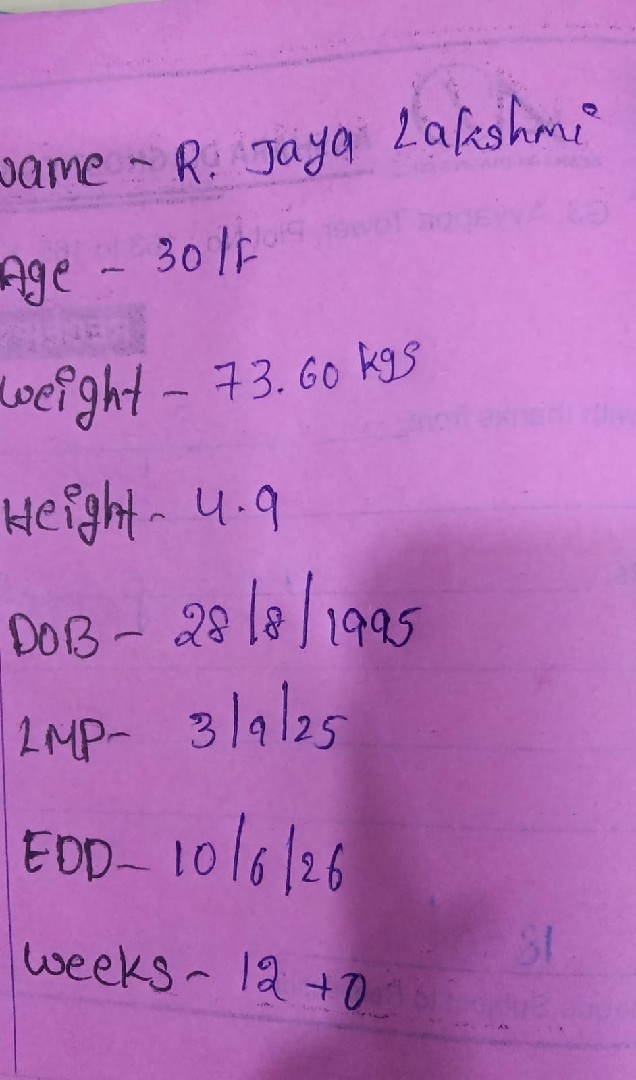 Name - R. Jaya Lakshmi
Age - 30/F
Weight - 73.60 kgs
Height - 4.9
DOB - 28/8/1995
LMP - 3/9/25
EDD - 10/6/26
Weeks - 12 +0